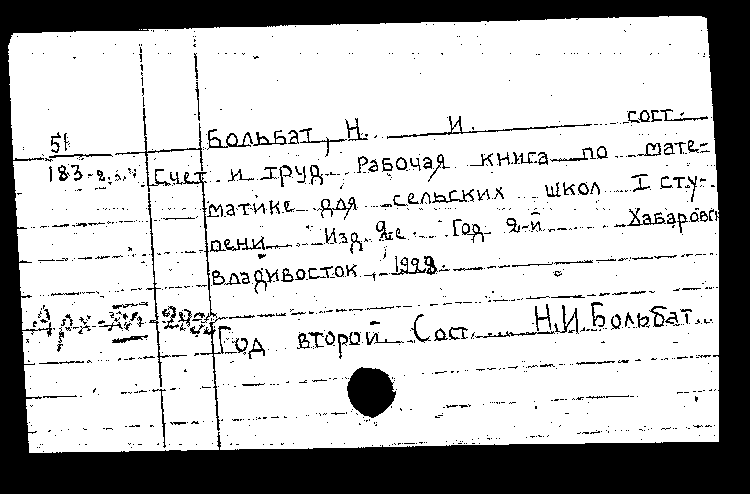 51
Больбат, Н. И. сост.
183-2.3.4. Счет и труд. Рабочая книга по мате-
матике для сельских школ I сту-
пени Изд. 2-е. Год 2-й Хабаровск
Владивосток, 1923.
Арх-
Год второй. Сост. Н.И. Больбат.